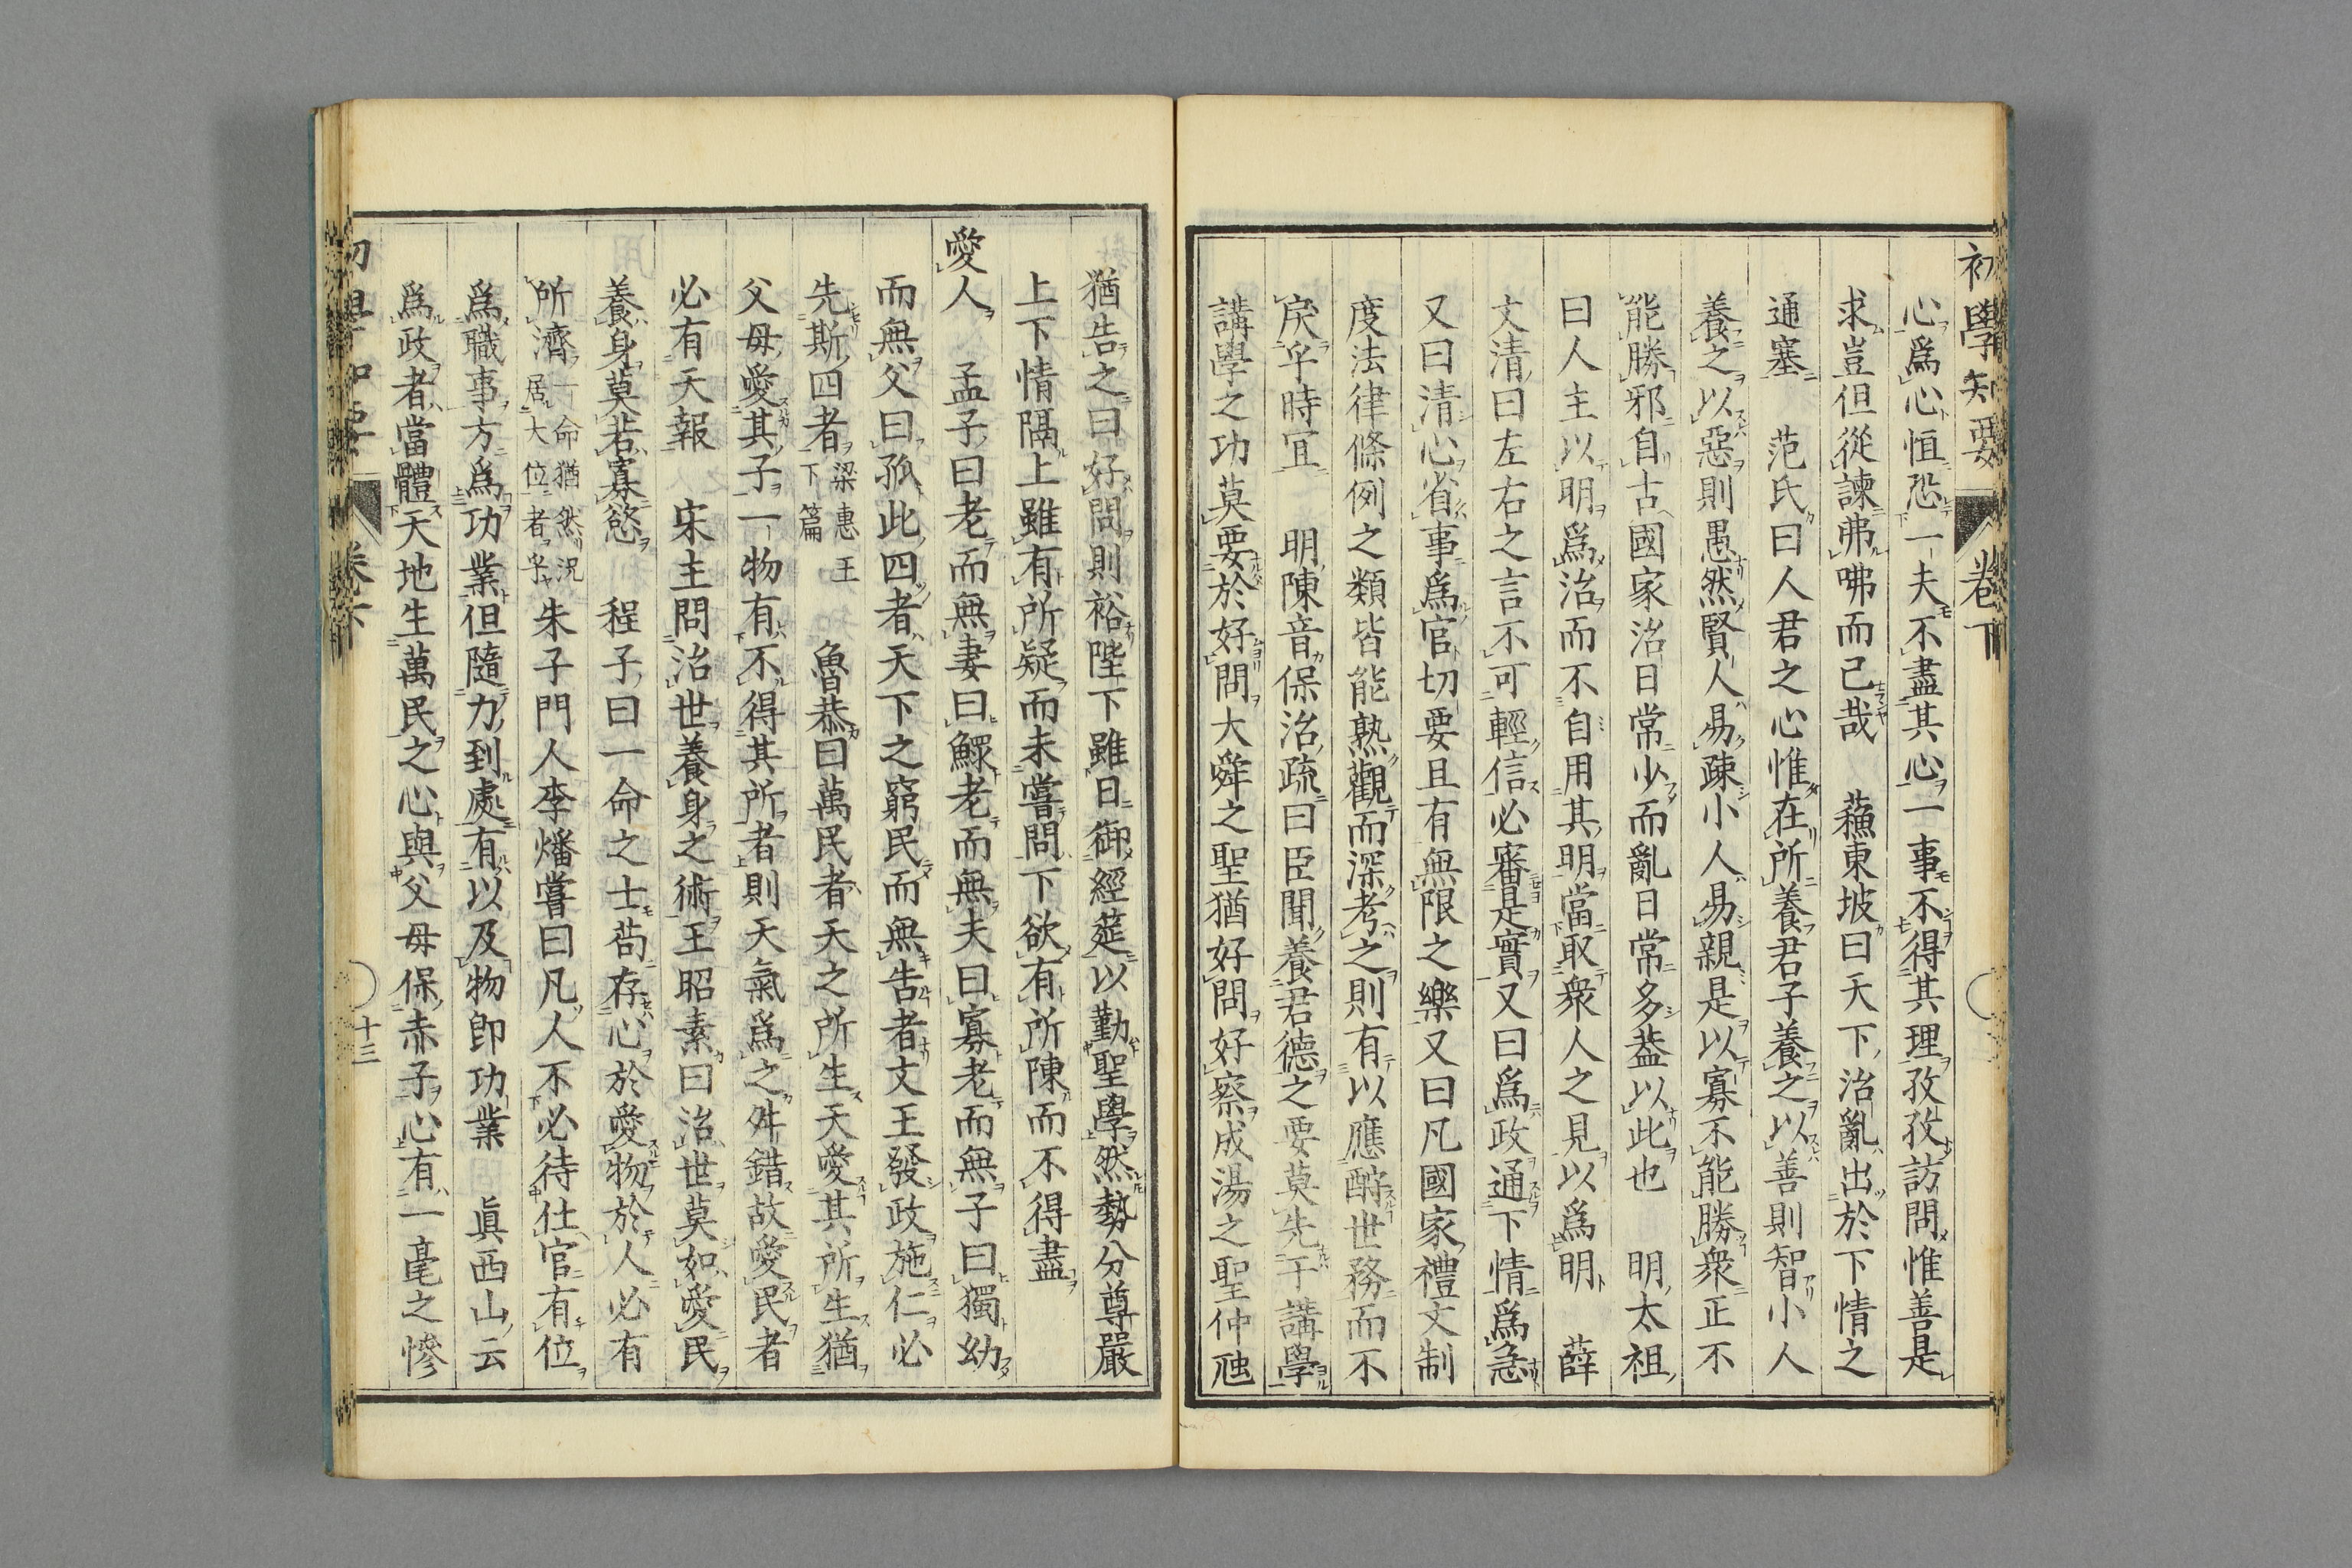 初學知要 卷下
心爲心恒恐一夫不盡其心一事不得其理孜孜訪問惟善是
求豈但從諫弗咈而已哉 蘓東坡曰天下治亂出於下情之
通塞 范氏曰人君之心惟在所養君子養之以善則智小人
養之以惡則愚然賢人易疎小人易親是以寡不能勝衆正不
能勝邪自古國家治日常少而亂日常多葢以此也 明太祖
曰人主以明爲治而不自用其明當取衆人之見以爲明 薛
文清曰左右之言不可輕信必審是實又曰爲政通下情爲急
又曰清心省事爲官切要且有無限之樂又曰凡國家禮文制
度法律條例之類皆能熟觀而深考之則有以應酧世務而不
戻乎時宜 明陳音保治疏曰臣聞養君德之要莫先于講學
講學之功莫要於好問大舜之聖猶好問好察成湯之聖仲虺
猶告之曰好問則裕陛下雖日御經筵以勤聖學然勢分尊嚴
上下情隔上雖有所疑而未嘗問下欲有所陳而不得盡
愛人 孟子曰老而無妻曰鰥老而無夫曰寡老而無子曰獨幼
而無父曰孤此四者天下之窮民而無告者文王發政施仁必
先斯四者梁惠王下篇 魯恭曰萬民者天之所生天愛其所生猶
父母愛其子一物有不得其所者則天氣爲之舛錯故愛民者
必有天報 宋主問治世養身之術王昭素曰治世莫如愛民
養身莫若寡慾 程子曰一命之士苟存心於愛物於人必有
所濟一命猶然況居大位者乎 朱子門人李燔嘗曰凡人不必待仕官有位
爲職事方爲功業但隨力到處有以及物卽功業 眞西山云
爲政者當體天地生萬民之心與父母保赤子心有一毫之慘
初學知要 卷下 十三